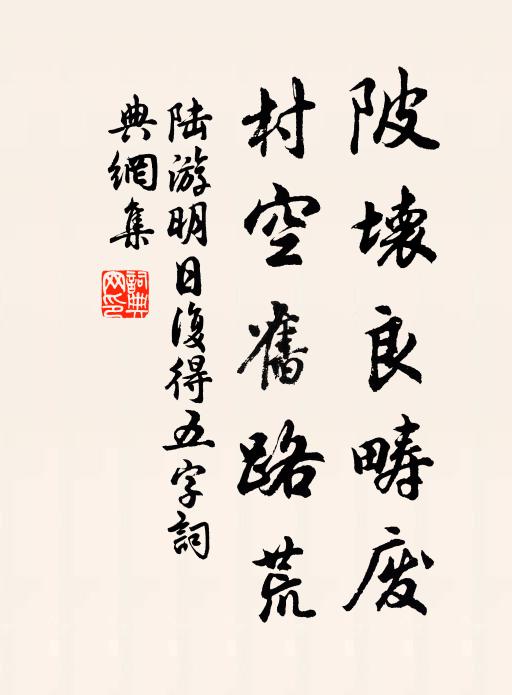 陂壊良疇废
村空舊路荒
陆游明日復得五字詞
典網集
詞典
网印